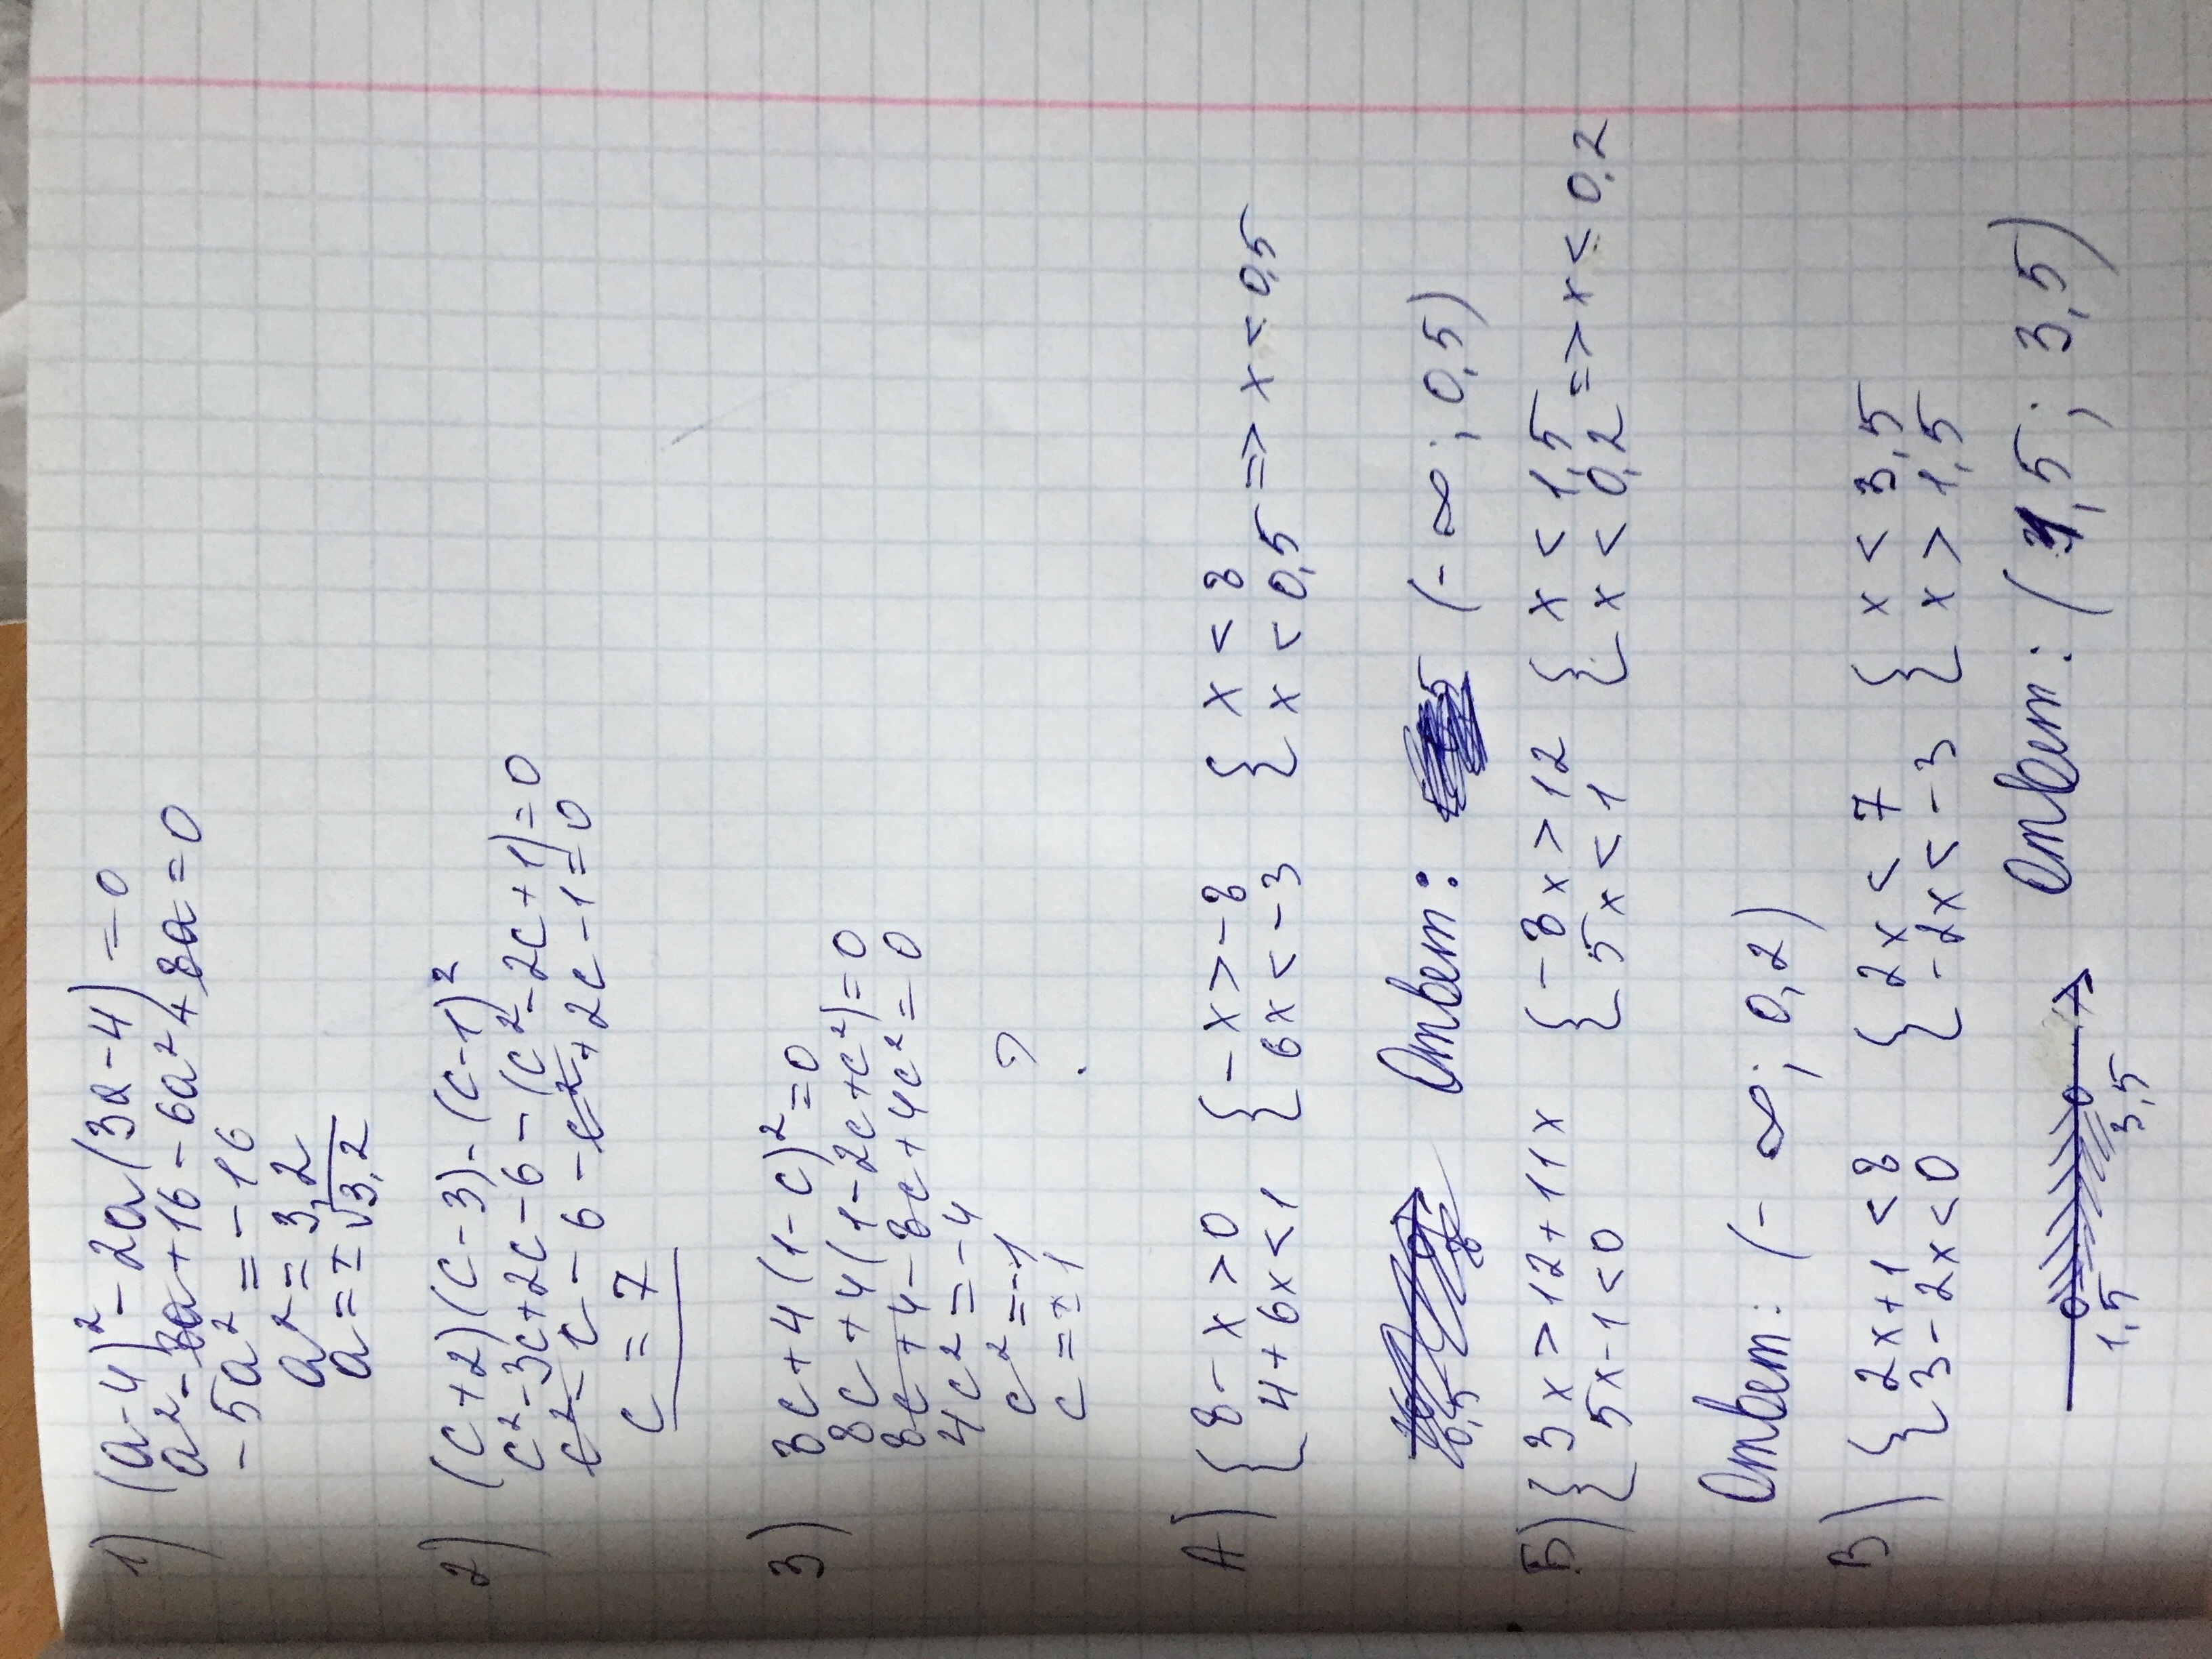 1) (a-4)²-2a(3a-4)=0
a²-8a+16-6a²+8a=0
-5a²=-16
a²=3,2
a=±√3,2
2) (c+2)(c-3)-(c-1)²
c²-3c+2c-6-(c²-2c+1)=0
c²-c-6-c²+2c-1=0
c=7
3) 8c+4(1-c)²=0
8c+4(1-2c+c²)=0
8c+4-8c+4c²=0
4c²=-4
c²=-1
c=±1 ?
А) {8-x>0 {-x>-8 {x<8
4+6x<1 6x<-3 x<0,5 => x<0,5
Ответ: (-∞; 0,5)
Б) {3x>12+11x {-8x>12 {x<1,5
5x-1<0 5x<1 x<0,2 => x<0,2
Ответ: (-∞; 0,2)
В) {2x+1<8 {2x<7 {x<3,5
3-2x<0 -2x<-3 x>1,5
1,5 3,5 Ответ: (1,5; 3,5)